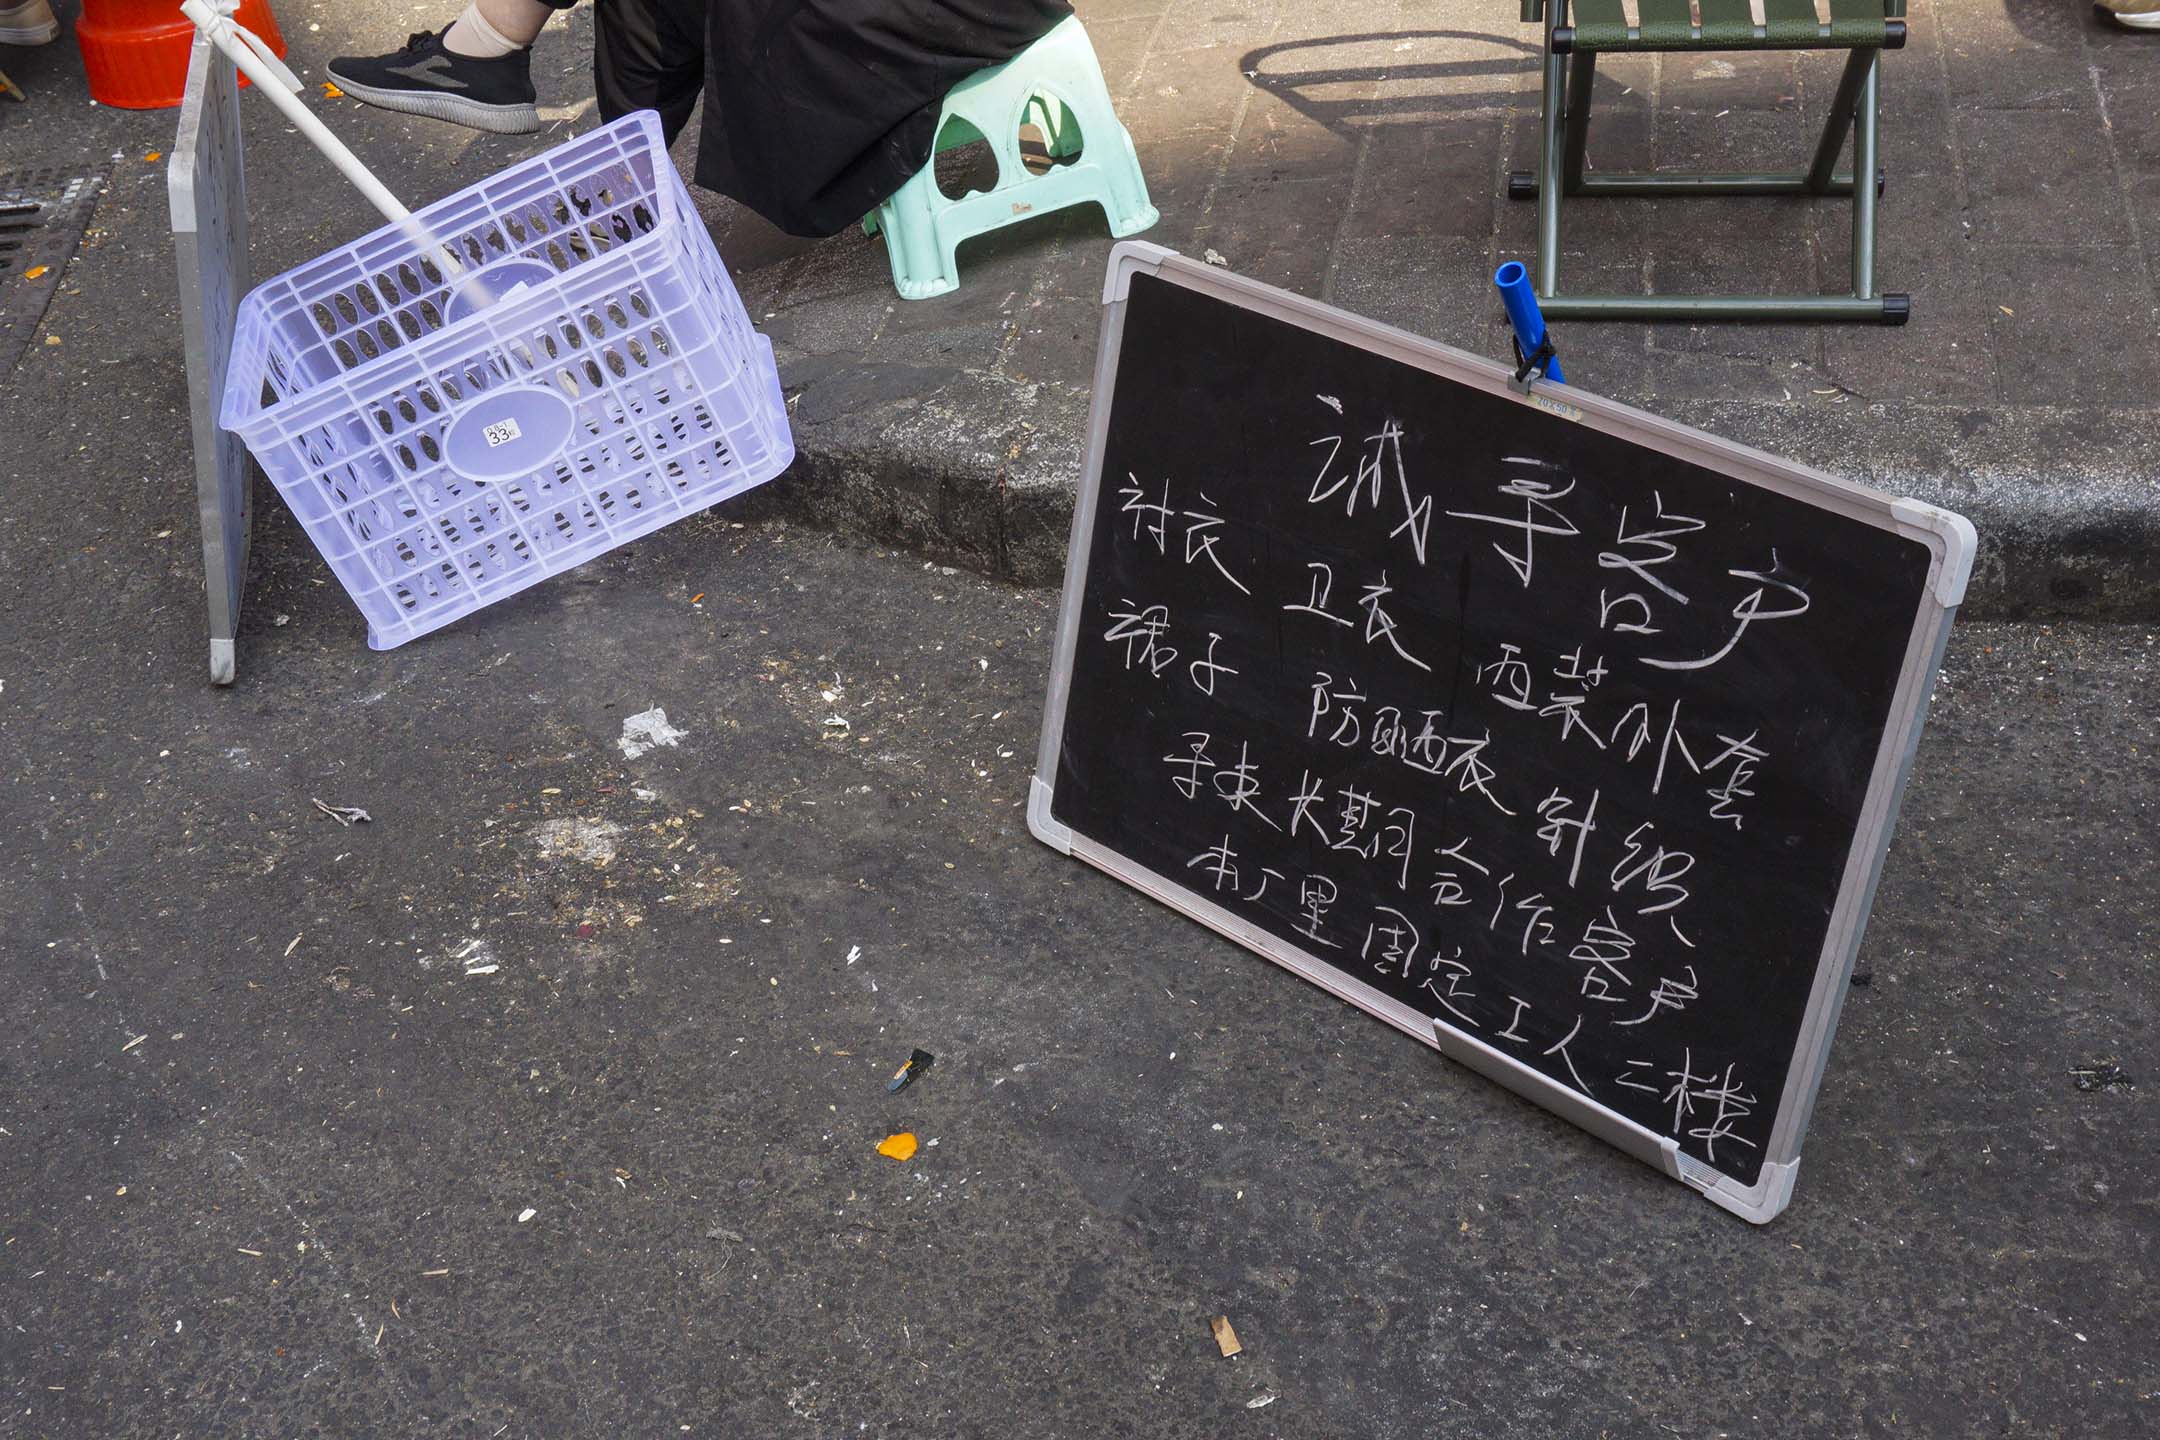 诚寻客户
衬衣 卫衣 西装外套
裙子 防晒衣 针织
寻求长期合作客户
本厂里固定工人二楼
33